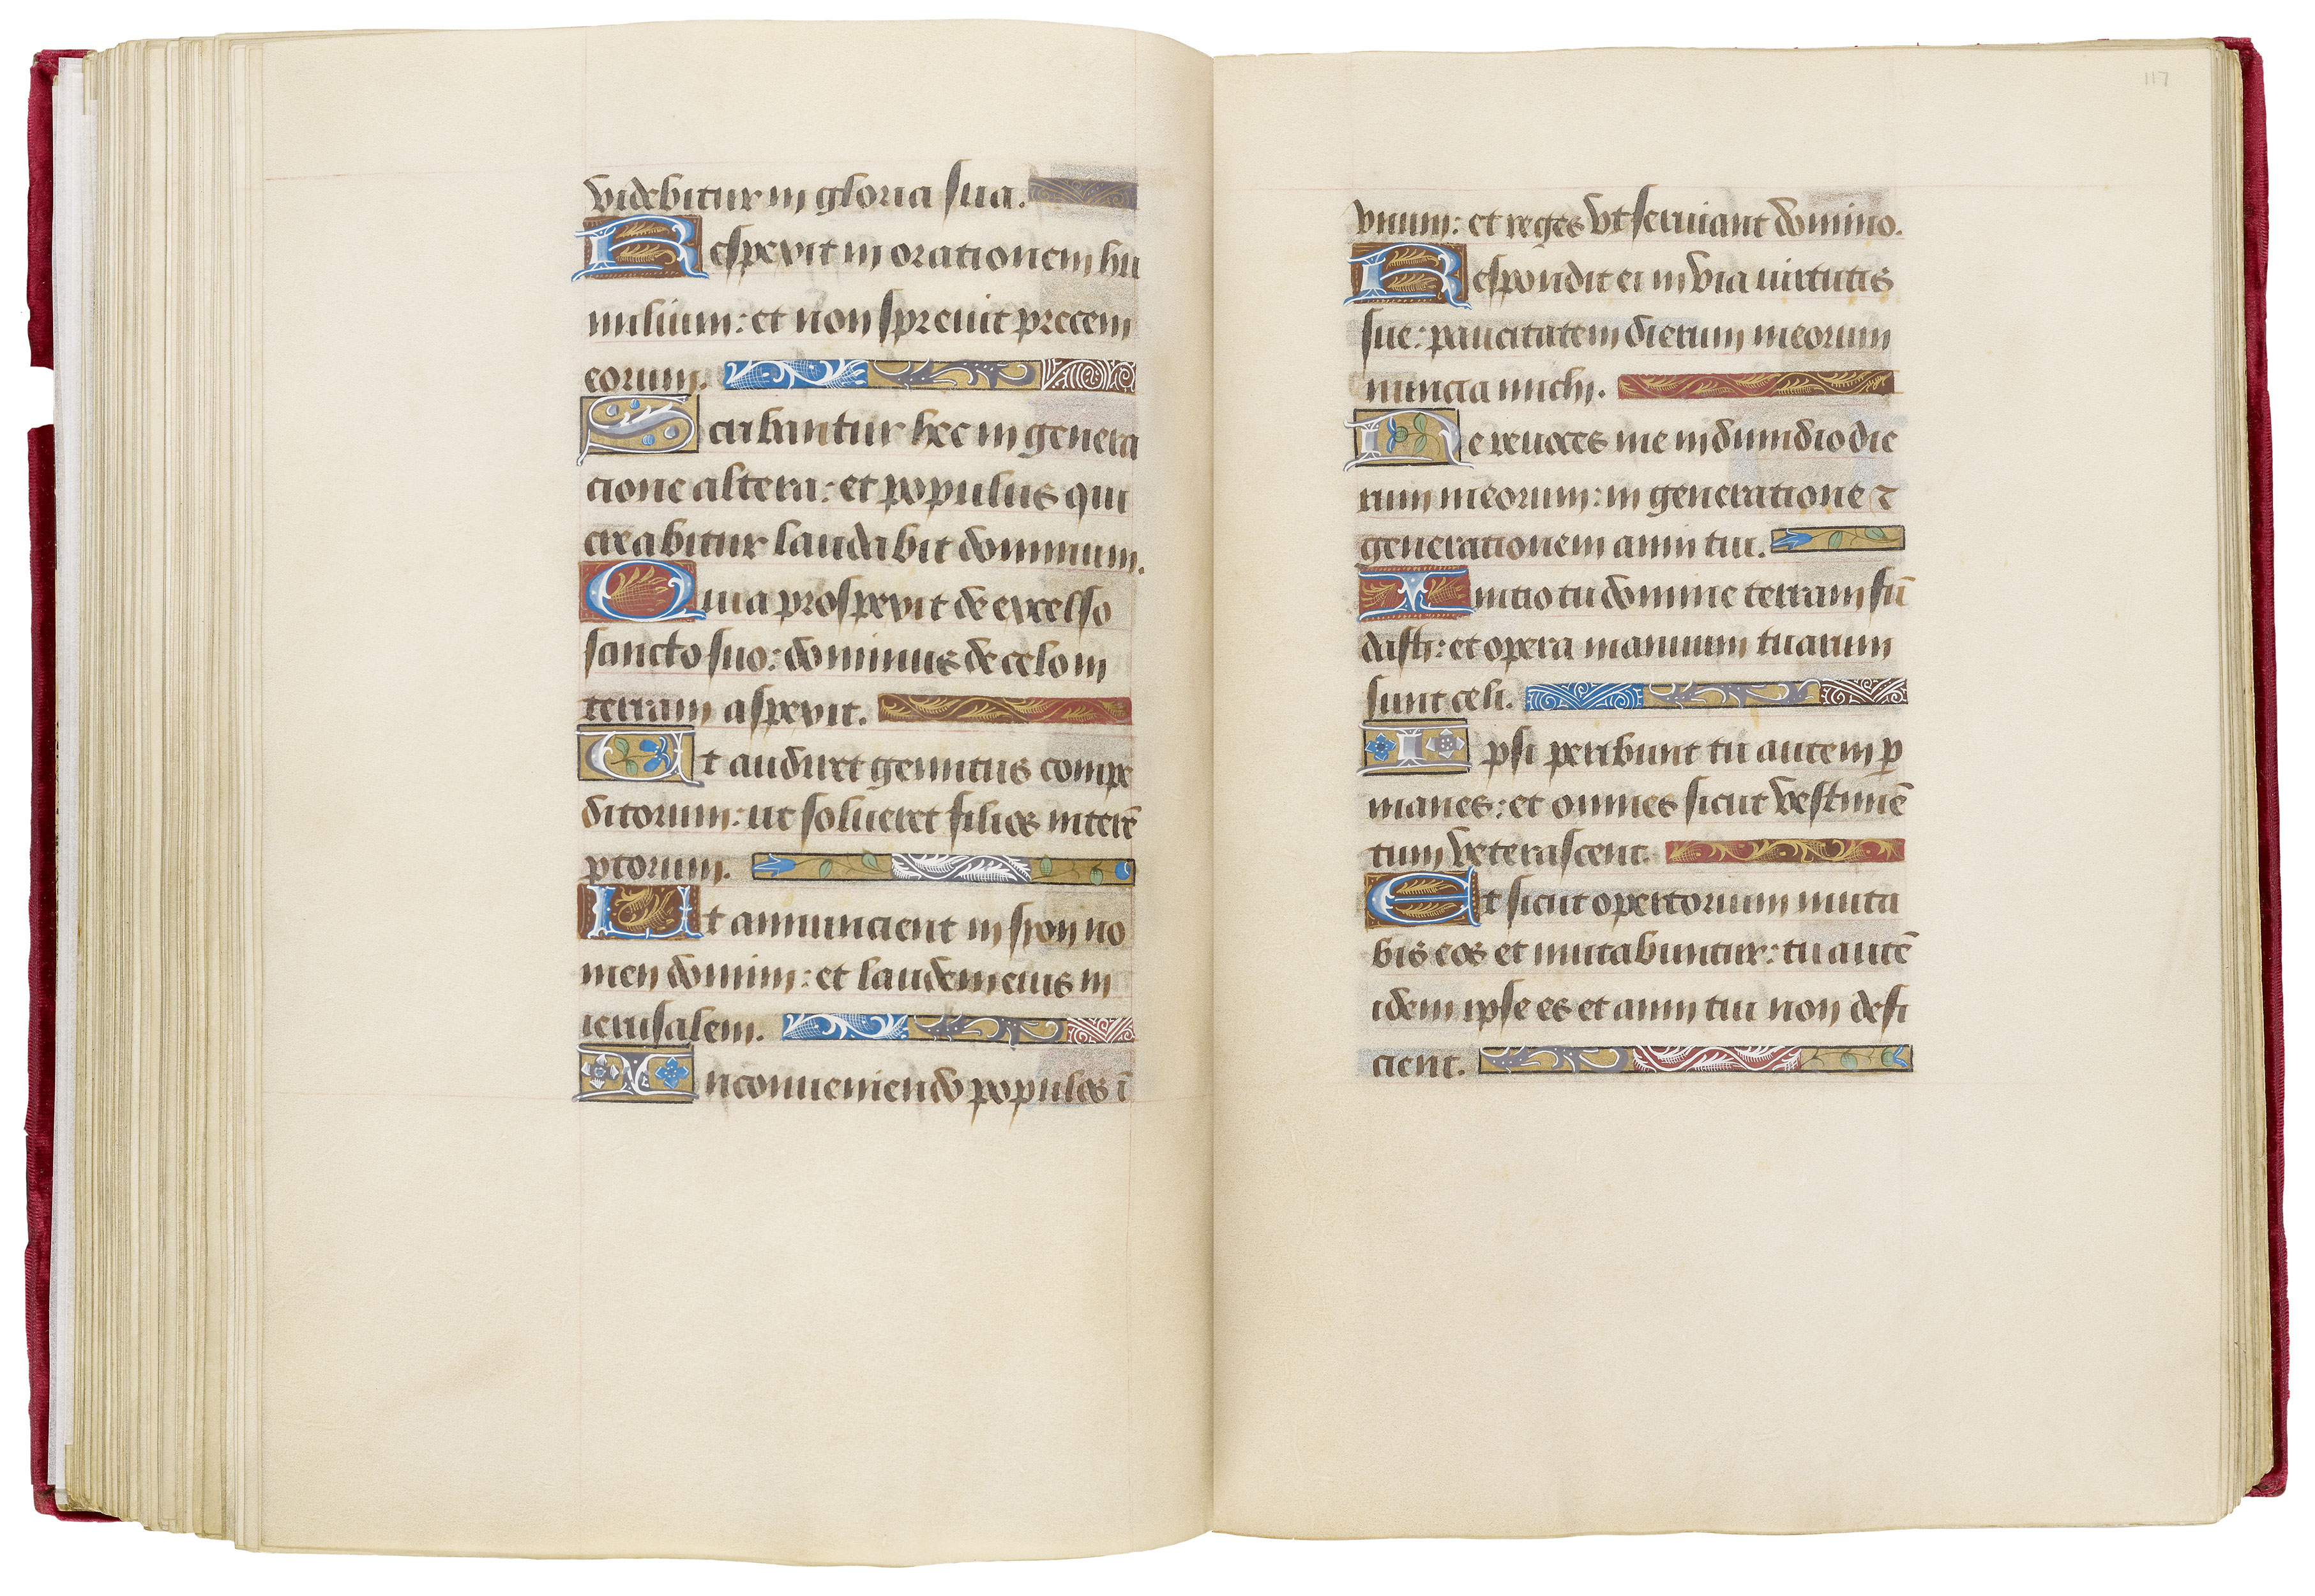 videbitur in gloria sua.
Respexit in orationem hu
milium: et non spreuit precem
eorum.
Scribantur hec in genera
cione altera: et populus qui
creabitur laudabit dominum.
Quia prospexit de excelso
sancto suo: dominus de celo in
terram aspexit.
Ut audiret gemitus compe
ditorum: ut solueret filios interē
ptorum.
Ut annuncient in syon no
men domini: et laudem eius in
ierusalem.
In conueniendo populos ī
117
vnum: et reges vt seruiant domino.
Respondit ei in via uirtutis
sue: paucitatem dierum meorum
nuncia michi.
Ne reuoces me in dimidio die
rum meorum: in generatione ⁊
generationem anni tui.
Initio tu domine terram fū
dasti: et opera manuum tuarum
sunt celi.
Ipsi peribunt tu autem ꝑ
manes: et omnes sicut vestimē
tum veterascent.
Et sicut opertorium muta
bis eos et mutabuntur: tu autē
idem ipse es et anni tui non defi
cient.